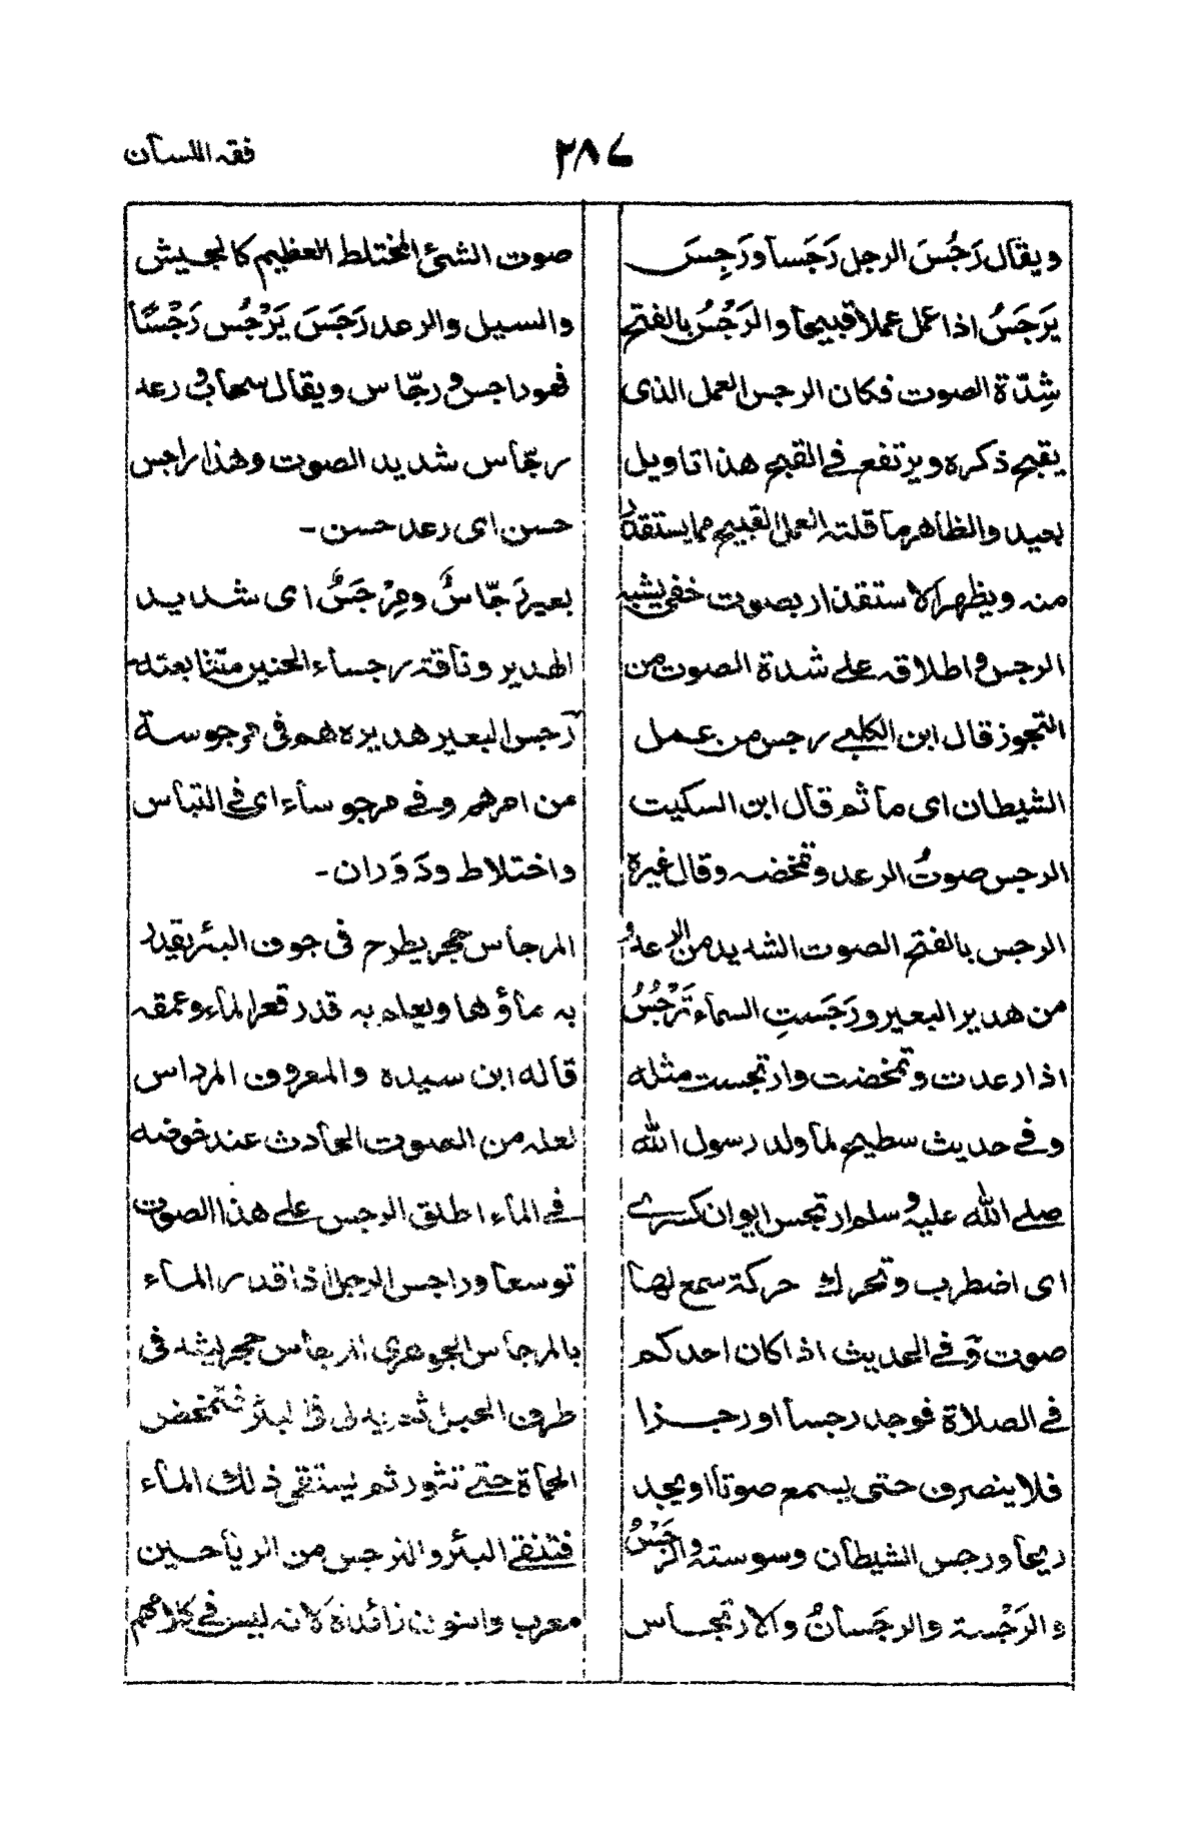 فقه اللسان
٢٨٧
ويقال رَجُسَ الرجل رَجَسا ورَجِسَ
يَرجَسُ اذا عمل عملا قبيحا والرَجْسُ بالفتح
شِدّة الصوت فكان الرجس العمل الذى
يقبح ذكره ويرتفع فے القبح هذا تاويل
بعيد والظاهر ما قلته العمل القبيح مما يستقذر
منه ويظهر الاستقذار بصوت خفى يشبه
الرجس واطلاقه علے شدة الصوت من
التجوز قال ابن الكلبے رجس من عمل
الشيطان اى مأثم قال ابن السكيت
الرجس صوتُ الرعد وتمخضه وقال غيره
الرجس بالفتح الصوت الشديد من الرعد و
من هدير البعير ورَجَستِ السماء تَرْجُسُ
اذا رعدت وتمخضت وارتجست مثله
وفے حديث سطيح لما ولد رسول الله
صلے الله عليه وسلم ارتجس ايوان كسرے
اى اضطرب وتحرك حركة سمع لها
صوت وفے الحديث اذا كان احدكم
فے الصلاة فوجد رجسا او رجزا
فلا ينصرف حتى يسمع صوتا او يجد
ريحا ورجس الشيطان وسوسته والرَجْسُ
والرَجْسة والرجَسانُ والارتجاس
صوت الشئ المختلط العظيم كالجيش
والسيل والرعد رَجَسَ يَرْجُس رَجْسًا
فهو راجس ورجّاس ويقال سحاب ورعد
رجّاس شديد الصوت وهذا راجس
حسن اى رعد حسن -
بعير رَجّاسٌ ومِرْجَسٌ اى شديد
الهدير وناقة رجساء الحنين متتابعته
رجس البعير هديره هم فى مرجوسة
من امرهم وفے مرجوساء اى فے التباس
واختلاط ودَوَران -
المرجاس حجر يطرح فى جوف البئر يقدر
به ماؤها ويعلم به قدر قعر الماء وعمقه
قاله ابن سيده والمعروف المرداس
لعله من الصوت الحادث عند خوضه
فے الماء اطلق الرجس علے هذا الصوت
توسعا وراجس الرجل اذا قدر الماء
بالمرجاس الجوهرى المرجاس حجر يشد فى
طرف الحبل ثم يدلى فى البئر فتمخض
الحمأة حتے تثور ثم يستقى ذلك الماء
فتنقے البئر والنرجس من الرياحين
معرب والنون زائدة لانه ليس فے كلامهم